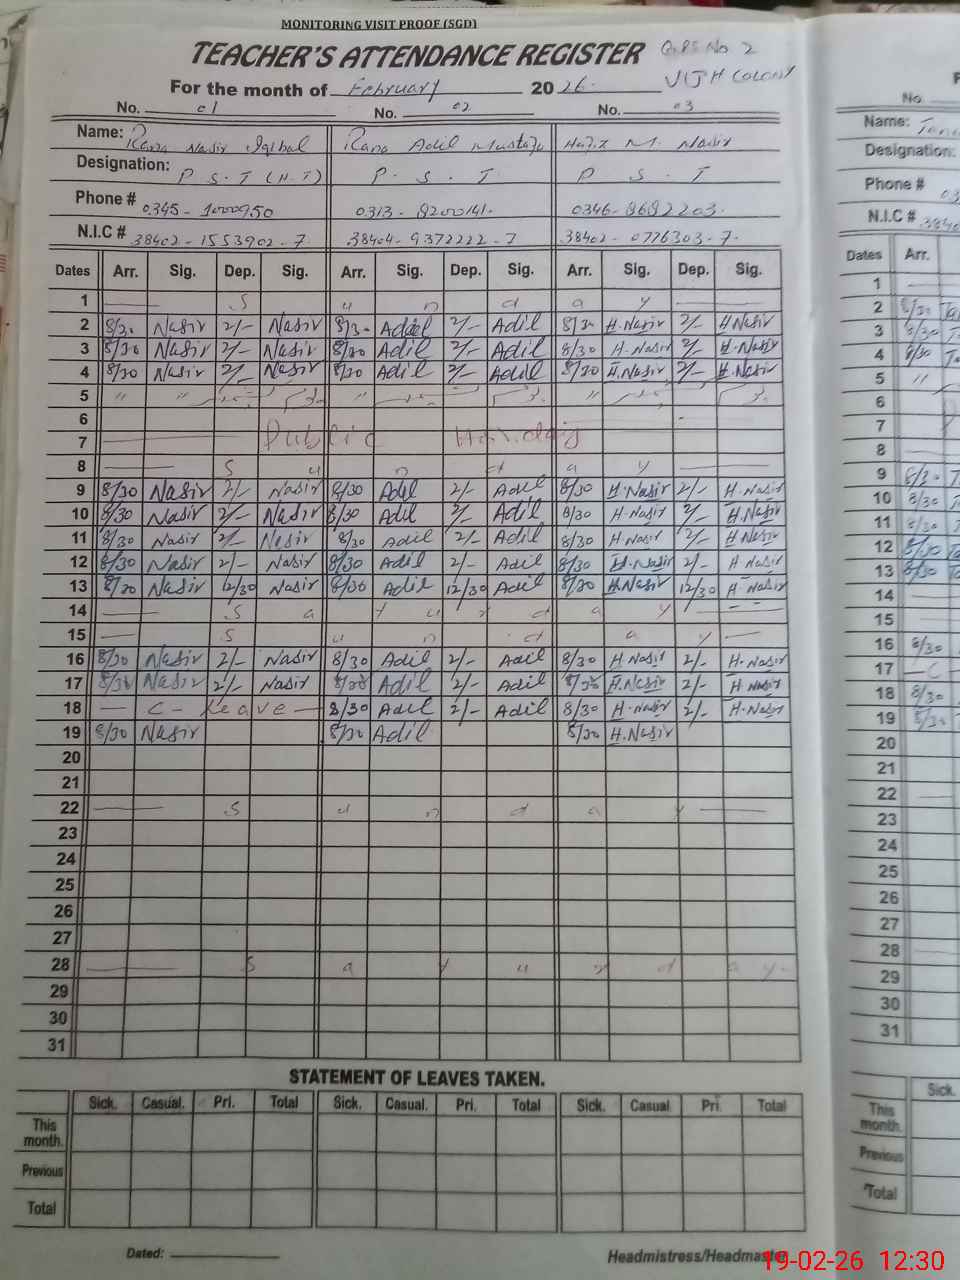 MONITORING VISIT PROOF (SGD)
TEACHER'S ATTENDANCE REGISTER GPS No 2
For the month of February 2026. COLONY
No. 01 No. 02 No. 03
Name: Rana Nasir Iqbal Rana Adil Mustafa Hafiz M. Nasir
Designation: P S T (H T) P. S. T P S. T
Phone # 0345-1000950 0313-8200141. 0346-8682203.
N.I.C # 38402-1553902-7 38404-9372222-7 38402-0776303-7.
Dates Arr. Sig. Dep. Sig. Arr. Sig. Dep. Sig. Arr. Sig. Dep. Sig.
1 S u n d a y
2 8/30 Nasir 2/- Nasir 8/30 Adil 2/- Adil 8/30 H.Nasir 2/- H.Nasir
3 8/30 Nasir 2/- Nasir 8/30 Adil 2/- Adil 8/30 H.Nasir 2/- H.Nasir
4 8/30 Nasir 2/- Nasir 8/30 Adil 2/- Adil 8/30 H.Nasir 2/- H.Nasir
5 " " " "
6
7 Public Holiday
8 S u n d a y
9 8/30 Nasir 2/- Nasir 8/30 Adil 2/- Adil 8/30 H.Nasir 2/- H.Nasir
10 8/30 Nasir 2/- Nasir 8/30 Adil 2/- Adil 8/30 H.Nasir 2/- H.Nasir
11 8/30 Nasir 2/- Nasir 8/30 Adil 2/- Adil 8/30 H.Nasir 2/- H.Nasir
12 8/30 Nasir 2/- Nasir 8/30 Adil 2/- Adil 8/30 H.Nasir 2/- H.Nasir
13 8/30 Nasir 12/30 Nasir 8/30 Adil 12/30 Adil 8/30 H.Nasir 12/30 H.Nasir
14 S a t u r d a y
15 S u n d a y
16 8/30 Nasir 2/- Nasir 8/30 Adil 2/- Adil 8/30 H.Nasir 2/- H.Nasir
17 8/30 Nasir 2/- Nasir 8/30 Adil 2/- Adil 8/30 H.Nasir 2/- H.Nasir
18 - C - Leave - 8/30 Adil 2/- Adil 8/30 H.Nasir 2/- H.Nasir
19 8/30 Nasir 8/30 Adil 8/30 H.Nasir
20
21
22 S u n d a y
23
24
25
26
27
28 S a t u r d a y
29
30
31
STATEMENT OF LEAVES TAKEN.
Sick. Casual. Pri. Total Sick. Casual. Pri. Total Sick. Casual Pri. Total
This month.
Previous
Total
Dated: Headmistress/Headmaster
No.
Name:
Designation:
Phone # 03
N.I.C #
Dates Arr.
1
2 8/30
3 8/30
4 8/30
5 "
6
7
8
9 8/30
10 8/30
11 8/30
12 8/30
13 8/30
14
15
16 8/30
17 C
18 8/30
19 8/30
20
21
22
23
24
25
26
27
28
29
30
31
Sick.
This month.
Previous
Total
19-02-26 12:30